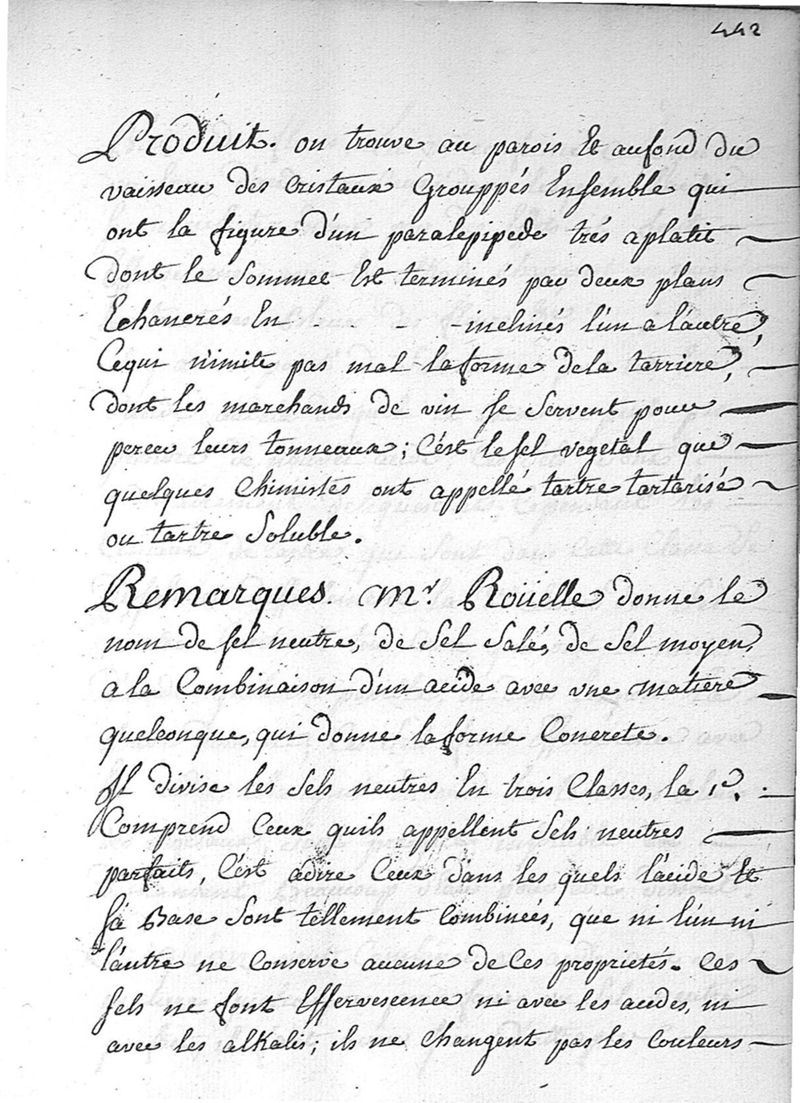 442
Produit. on trouve au parois Et aufond du
vaisseau des cristaux Grouppés Ensemble qui
ont la figure d'un paralepipede trés aplatit
dont le Sommet Est terminés par deux plans
Echancrés En - - inclinés l'un a l'autre,
Cequi n'imite pas mal la forme dela tarriere,
dont les marchands de vin se Servent pour
percer leurs tonneaux; C'est le sel vegetal que
quelques Chimistes ont appellé tartre tartarisé
ou tartre Soluble.
Remarques. Mr. Roüelle donne le
nom de sel neutre, de Sel Salé, de Sel moyen,
a la Combinaison d'un acide avec vne matiere
quelconque, qui donne la forme Concrete.
Il divise les Sels neutres En trois Classes, la 1e.
Comprend Ceux quils appellent Sels neutres
parfaits, C'est adire Ceux dans les quels l'acide Et
sa Base Sont tellement Combineés, que ni l'un ni
l'autre ne Conserve aucune de Ces proprietés. Ces
sels ne font Effervescence ni avec les acides, ni
avec les alkalis; ils ne changent pas les Couleurs